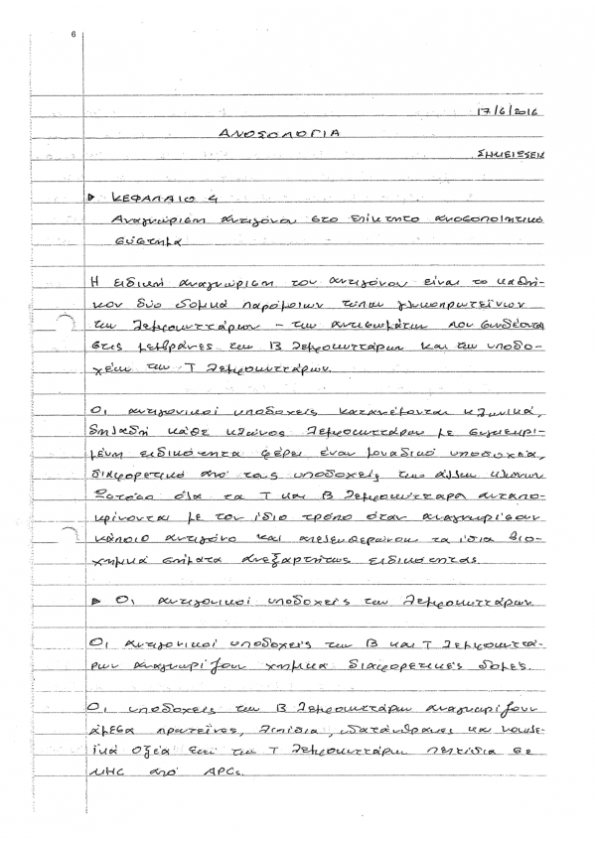 6
17/6/2016
ΑΝΟΣΟΛΟΓΙΑ
ΣΗΜΕΙΩΣΕΙΣ
▶ ΚΕΦΑΛΑΙΟ 4
Αναγνώριση αντιγόνου στο επίκτητο ανοσοποιητικό
σύστημα
Η ειδική αναγνώριση του αντιγόνου είναι το καθή-
κον δύο δομικά παρόμοιων τύπων γλυκοπρωτεϊνών
των λεμφοκυττάρων - των αντισωμάτων που συνδέονται
στις μεμβράνες των Β λεμφοκυττάρων και των υποδο-
χέων των Τ λεμφοκυττάρων.
Οι αντιγονικοί υποδοχείς κατανέμονται κλωνικά,
δηλαδή κάθε κλώνος λεμφοκυττάρων με συγκεκρι-
μένη ειδικότητα φέρει έναν μοναδικό υποδοχέα,
διαφορετικό από τους υποδοχείς των άλλων κλώνων
Ωστόσο όλα τα Τ και Β λεμφοκύτταρα ανταπο-
κρίνονται με τον ίδιο τρόπο όταν αναγνωρίσουν
κάποιο αντιγόνο και απελευθερώνουν τα ίδια βιο-
χημικά σήματα ανεξαρτήτως ειδικότητας.
▶ Οι αντιγονικοί υποδοχείς των λεμφοκυττάρων
Οι αντιγονικοί υποδοχείς των Β και Τ λεμφοκυττά-
ρων αναγνωρίζουν χημικά διαφορετικές δομές.
Οι υποδοχείς των Β λεμφοκυττάρων αναγνωρίζουν
άμεσα πρωτεΐνες, λιπίδια, υδατάνθρακες και νουκλε-
ϊκά οξέα ενώ των Τ λεμφοκυττάρων πεπτίδια σε
MHC από APCs.